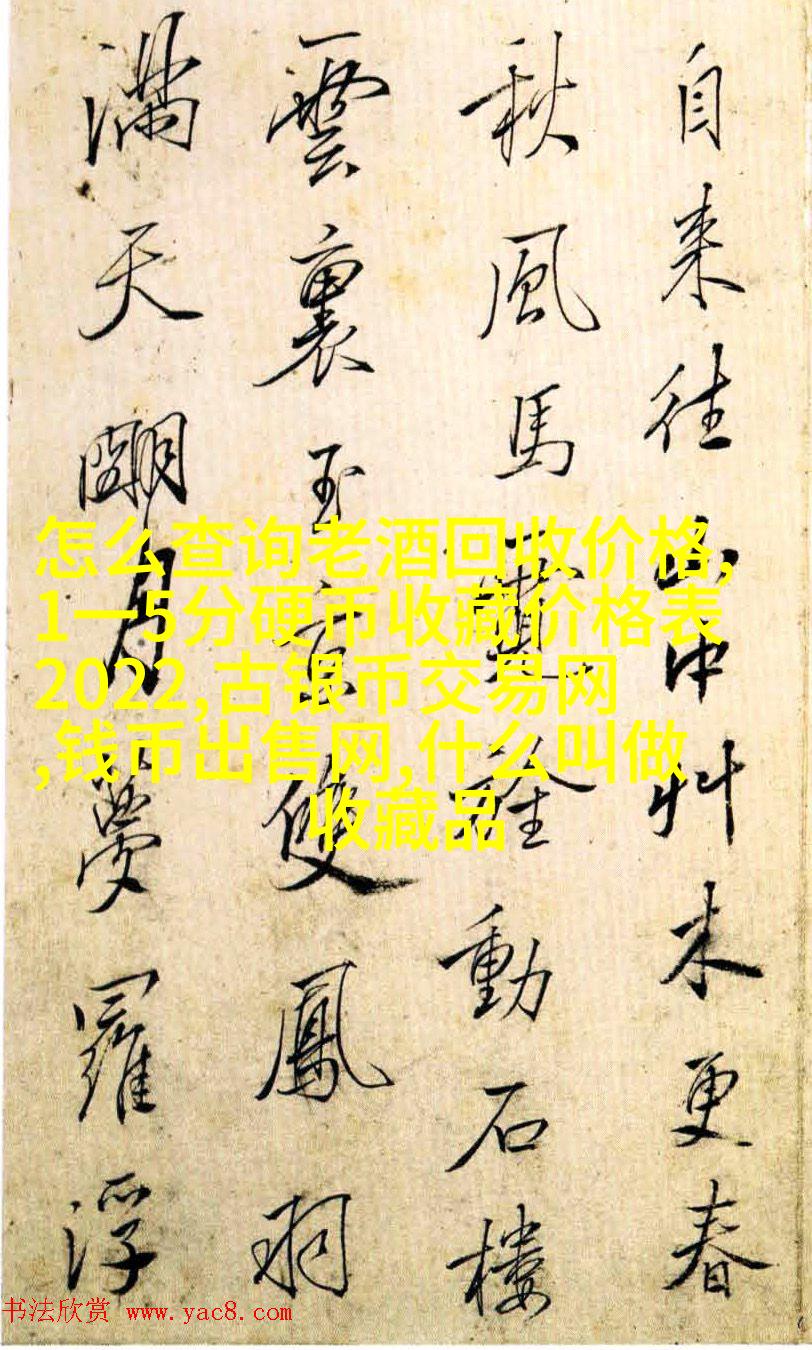 自来往山中艸木更春
秋風馬動石樓
雲裏玉京雙鳳羽
滿天朙月夢羅浮
怎么查询老酒回收价格,
1一5分硬币收藏价格表
2022,古银币交易网
,钱币出售网,什么叫做
收藏品
书法欣赏 www.yac8.com